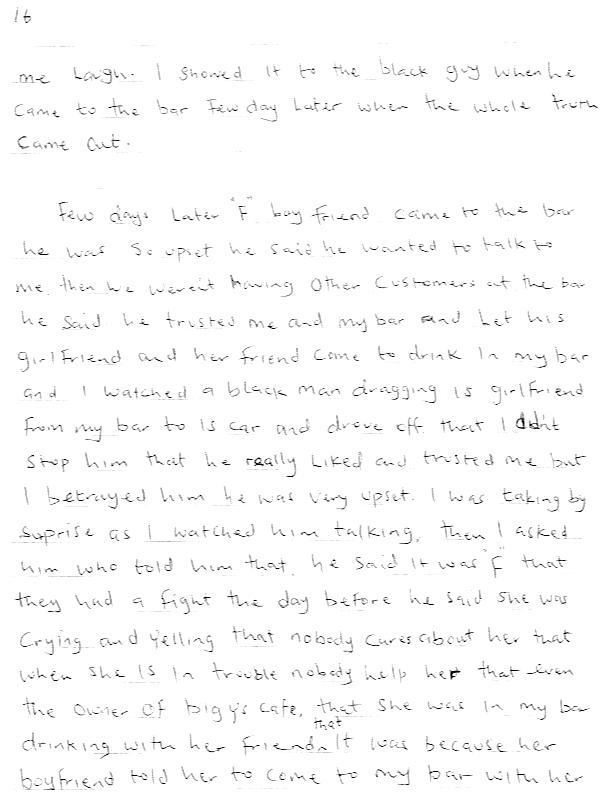 16
me Laugh. I showed It to the black guy when he
Came to the bar Few day Later when the whole truth
Came Out.
Few days Later "F" boy friend came to the bar
he was So upset he said he wanted to talk to
me, then we weren't having Other Customers at the bar
he Said he trusted me and my bar and Let his
girlFriend and her friend Come to drink In my bar
and I watched a black man dragging is girlfriend
From my bar to Is car and drove off that I didn't
Stop him that he really Liked and trusted me but
I betrayed him he was very upset. I was taking by
Suprise as I watched him talking, then I asked
him who told him that, he Said It was "F" that
they had a fight the day before he said She was
Crying and yelling that nobody cares about her that
when She Is In trouble nobody help her that even
the Owner Of bigy's Cafe, that She was In my bar
drinking with her Friend that It was because her
boyfriend told her to come to my bar with her